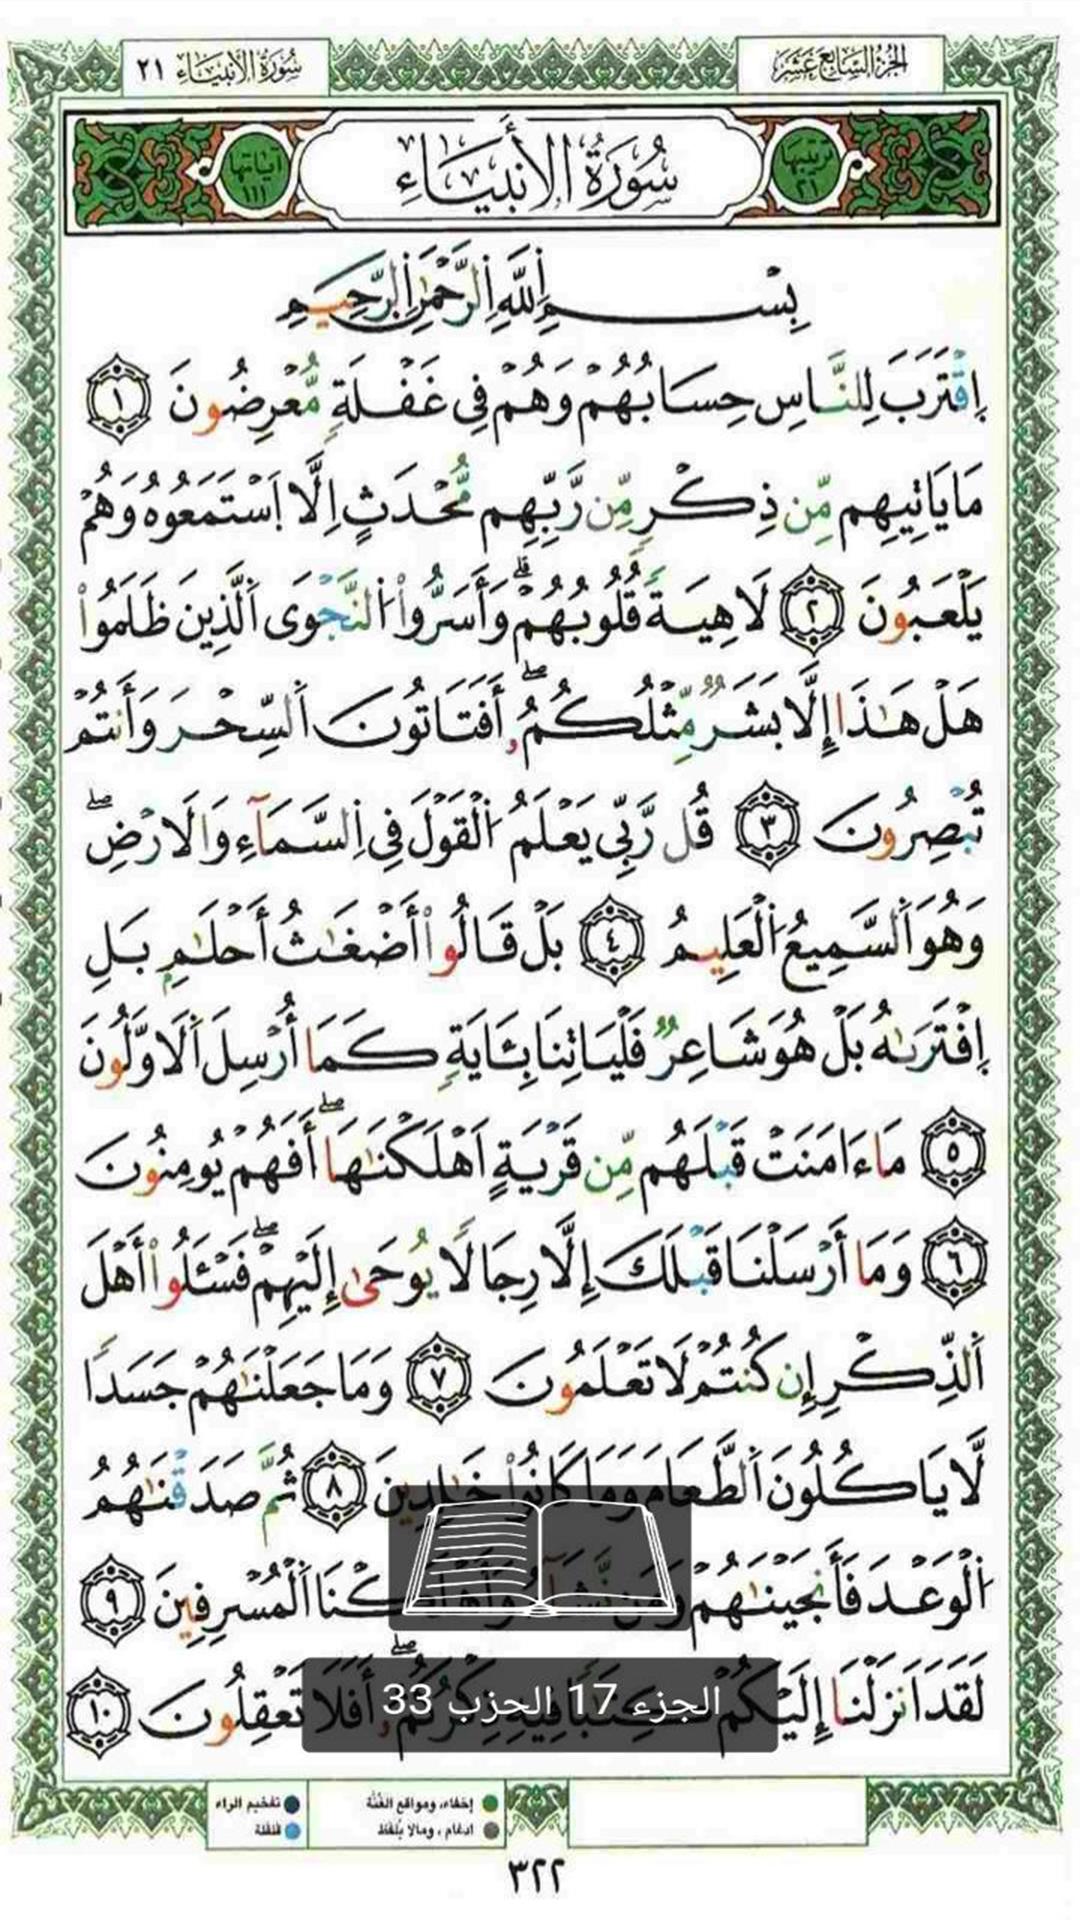 الجزء السابع عشر
سورة الأنبياء ٢١
ترتيبها ٢١
سُورَةُ الأَنبِيَاءِ
آياتها ١١١
بِسْمِ اِللَّهِ اِلرَّحْمَٰنِ اِلرَّحِيمِ
اِقْتَرَبَ لِلنَّاسِ حِسَابُهُمْ وَهُمْ فِى غَفْلَةٍ مُّعْرِضُونَ ١
مَا يَاتِيهِم مِّن ذِكْرٍ مِّن رَّبِّهِم مُّحْدَثٍ اِلَّا اَسْتَمَعُوهُ وَهُمْ
يَلْعَبُونَ ٢ لَاهِيَةً قُلُوبُهُمْ ۗ وَأَسَرُّواْ اُلنَّجْوَى اَلذِينَ ظَلَمُواْ
هَلْ هَٰذَا إِلَّا بَشَرٌ مِّثْلُكُمُۥ ۖ أَفَتَاتُونَ اَلسِّحْرَ وَأَنتُمْ
تُبْصِرُونَ ٣ قُل رَّبِّى يَعْلَمُ اُلْقَوْلَ فِى اِلسَّمَآءِ وَالَارْضِ ۖ
وَهُوَ اَلسَّمِيعُ اُلْعَلِيمُ ٤ بَلْ قَالُواْ أَضْغَٰثُ أَحْلَٰمٍ بَلِ
اِفْتَرَىٰهُ بَلْ هُوَ شَاعِرٌ فَلْيَاتِنَا بِـَٔايَةٍ كَمَا أُرْسِلَ اَلَاوَّلُونَ
٥ مَا ءَامَنَتْ قَبْلَهُم مِّن قَرْيَةٍ اَهْلَكْنَٰهَا ۖ أَفَهُمْ يُومِنُونَ
٦ وَمَا أَرْسَلْنَا قَبْلَكَ إِلَّا رِجَالًا يُوحَىٰ إِلَيْهِمْ ۖ فَسْـَٔلُواْ أَهْلَ
اَلذِّكْرِ إِن كُنتُمْ لَا تَعْلَمُونَ ٧ وَمَا جَعَلْنَٰهُمْ جَسَدًا
لَّا يَاكُلُونَ اَلطَّعَامَ وَمَا كَانُواْ خَٰلِدِينَ ٨ ثُمَّ صَدَقْنَٰهُمُ
اُلْوَعْدَ فَأَنجَيْنَٰهُمْ وَمَن نَّشَآءُ وَأَهْلَكْنَا اَلْمُسْرِفِينَ ٩
لَقَدَ اَنزَلْنَا إِلَيْكُمْ كِتَٰبًا فِيهِ ذِكْرُكُمُۥ ۖ أَفَلَا تَعْقِلُونَ ١٠
الجزء 17 الحزب 33
إخفاء، ومواقع الغُنَّة
تفخيم الراء
ادغام ، ومالا يُلفظ
قلقلة
٣٢٢